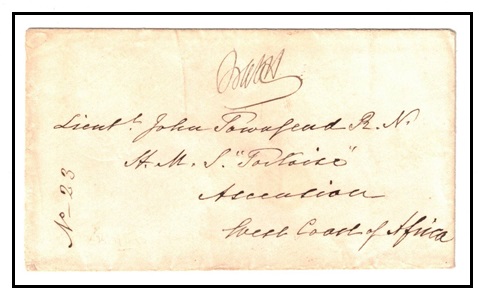 Lieut.t John Townsend R.N.
H.M.S. "Tortoise"
Ascension
West Coast of Africa
No 23